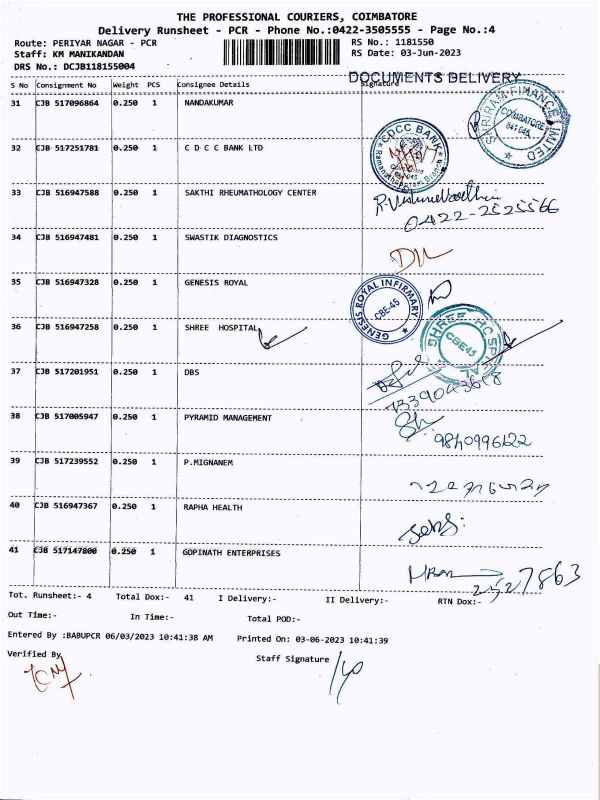 THE PROFESSIONAL COURIERS, COIMBATORE
Delivery Runsheet - PCR - Phone No.:0422-3505555 - Page No.:4
Route: PERIYAR NAGAR - PCR
RS No.: 1181550
Staff: KM MANIKANDAN
RS Date: 03-Jun-2023
DRS No.: DCJB118155004
DOCUMENTS DELIVERY
S No Consignment No Weight PCS Consignee Details Signature
31 CJB 517096864 0.250 1 NANDAKUMAR
SHRIRAM FINANCE LIMITED
COIMBATORE
641 045
32 CJB 517251781 0.250 1 C D C C BANK LTD
CDCC BANK
Ramanathapuram Branch
33 CJB 516947588 0.250 1 SAKTHI RHEUMATHOLOGY CENTER
0422-2525566
34 CJB 516947481 0.250 1 SWASTIK DIAGNOSTICS
35 CJB 516947328 0.250 1 GENESIS ROYAL
GENESIS ROYAL INFIRMARY
CBE-45
36 CJB 516947258 0.250 1 SHREE HOSPITAL
SHREE HOSPITAL
CBE45
37 CJB 517201951 0.250 1 DBS
38 CJB 517005947 0.250 1 PYRAMID MANAGEMENT
39 CJB 517239552 0.250 1 P.MIGNANEM
40 CJB 516947367 0.250 1 RAPHA HEALTH
41 CJB 517147800 0.250 1 GOPINATH ENTERPRISES
2527863
Tot. Runsheet:- 4 Total Dox:- 41 I Delivery:- II Delivery:- RTN Dox:-
Out Time:- In Time:- Total POD:-
Entered By :BABUPCR 06/03/2023 10:41:38 AM Printed On: 03-06-2023 10:41:39
Verified By
Staff Signature